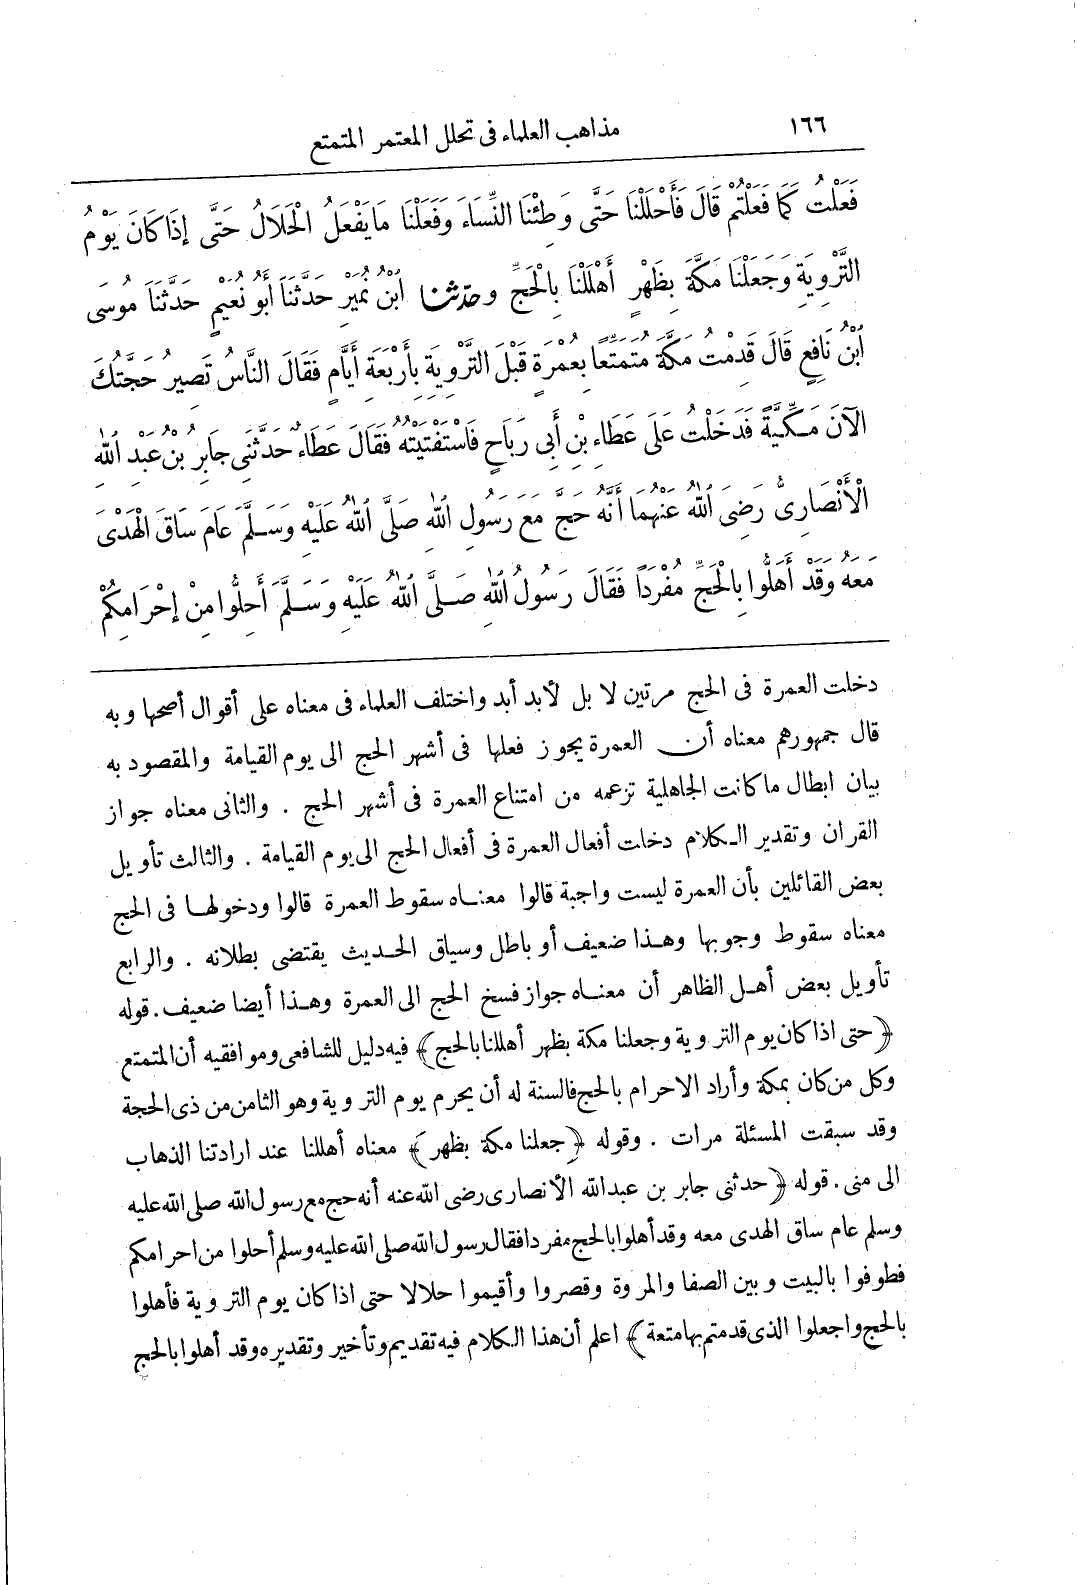 ١٦٦ مذاهب العلماء فى تحلل المعتمر المتمتع
فَعَلْتُ كَمَا فَعَلْتُمْ قَالَ فَأَحْلَلْنَا حَتَّى وَطِئْنَا النِّسَاءَ وَفَعَلْنَا مَا يَفْعَلُ الْحَلَالُ حَتَّى إِذَا كَانَ يَوْمُ
التَّرْوِيَةِ وَجَعَلْنَا مَكَّةَ بِظَهْرٍ أَهْلَلْنَا بِالْحَجِّ وحدثنا ابْنُ نُمَيْرٍ حَدَّثَنَا أَبُو نُعَيْمٍ حَدَّثَنَا مُوسَى
ابْنُ نَافِعٍ قَالَ قَدِمْتُ مَكَّةَ مُتَمَتِّعًا بِعُمْرَةٍ قَبْلَ التَّرْوِيَةِ بِأَرْبَعَةِ أَيَّامٍ فَقَالَ النَّاسُ تَصِيرُ حَجَّتُكَ
الآنَ مَكِّيَّةً فَدَخَلْتُ عَلَى عَطَاءِ بْنِ أَبِى رَبَاحٍ فَاسْتَفْتَيْتُهُ فَقَالَ عَطَاءٌ حَدَّثَنِى جَابِرُ بْنُ عَبْدِ اللهِ
الْأَنْصَارِىُّ رَضِىَ اللهُ عَنْهُمَا أَنَّهُ حَجَّ مَعَ رَسُولِ اللهِ صَلَّى اللهُ عَلَيْهِ وَسَلَّمَ عَامَ سَاقَ الْهَدْىَ
مَعَهُ وَقَدْ أَهَلُّوا بِالْحَجِّ مُفْرَدًا فَقَالَ رَسُولُ اللهِ صَلَّى اللهُ عَلَيْهِ وَسَلَّمَ أَحِلُّوا مِنْ إِحْرَامِكُمْ
دخلت العمرة فى الحج مرتين لا بل لأبد أبد واختلف العلماء فى معناه على أقوال أصحها وبه
قال جمهورهم معناه أن العمرة يجوز فعلها فى أشهر الحج الى يوم القيامة والمقصود به
بيان ابطال ما كانت الجاهلية تزعمه من امتناع العمرة فى أشهر الحج . والثانى معناه جواز
القران وتقدير الكلام دخلت أفعال العمرة فى أفعال الحج الى يوم القيامة . والثالث تأويل
بعض القائلين بأن العمرة ليست واجبة قالوا معناه سقوط العمرة قالوا ودخولها فى الحج
معناه سقوط وجوبها وهذا ضعيف أو باطل وسياق الحديث يقتضى بطلانه . والرابع
تأويل بعض أهل الظاهر أن معناه جواز فسخ الحج الى العمرة وهذا أيضا ضعيف . قوله
﴿حتى اذا كان يوم التروية وجعلنا مكة بظهر أهللنا بالحج﴾ فيه دليل للشافعى وموافقيه أن المتمتع
وكل من كان بمكة وأراد الاحرام بالحج فالسنة له أن يحرم يوم التروية وهو الثامن من ذى الحجة
وقد سبقت المسئلة مرات . وقوله ﴿جعلنا مكة بظهر﴾ معناه أهللنا عند ارادتنا الذهاب
الى منى . قوله ﴿حدثنى جابر بن عبدالله الأنصارى رضى الله عنه أنه حج مع رسول الله صلى الله عليه
وسلم عام ساق الهدى معه وقد أهلوا بالحج مفردا فقال رسول الله صلى الله عليه وسلم أحلوا من احرامكم
فطوفوا بالبيت وبين الصفا والمروة وقصروا وأقيموا حلالا حتى اذا كان يوم التروية فأهلوا
بالحج واجعلوا الذى قدمتم بها متعة﴾ اعلم أن هذا الكلام فيه تقديم وتأخير وتقديره وقد أهلوا بالحج